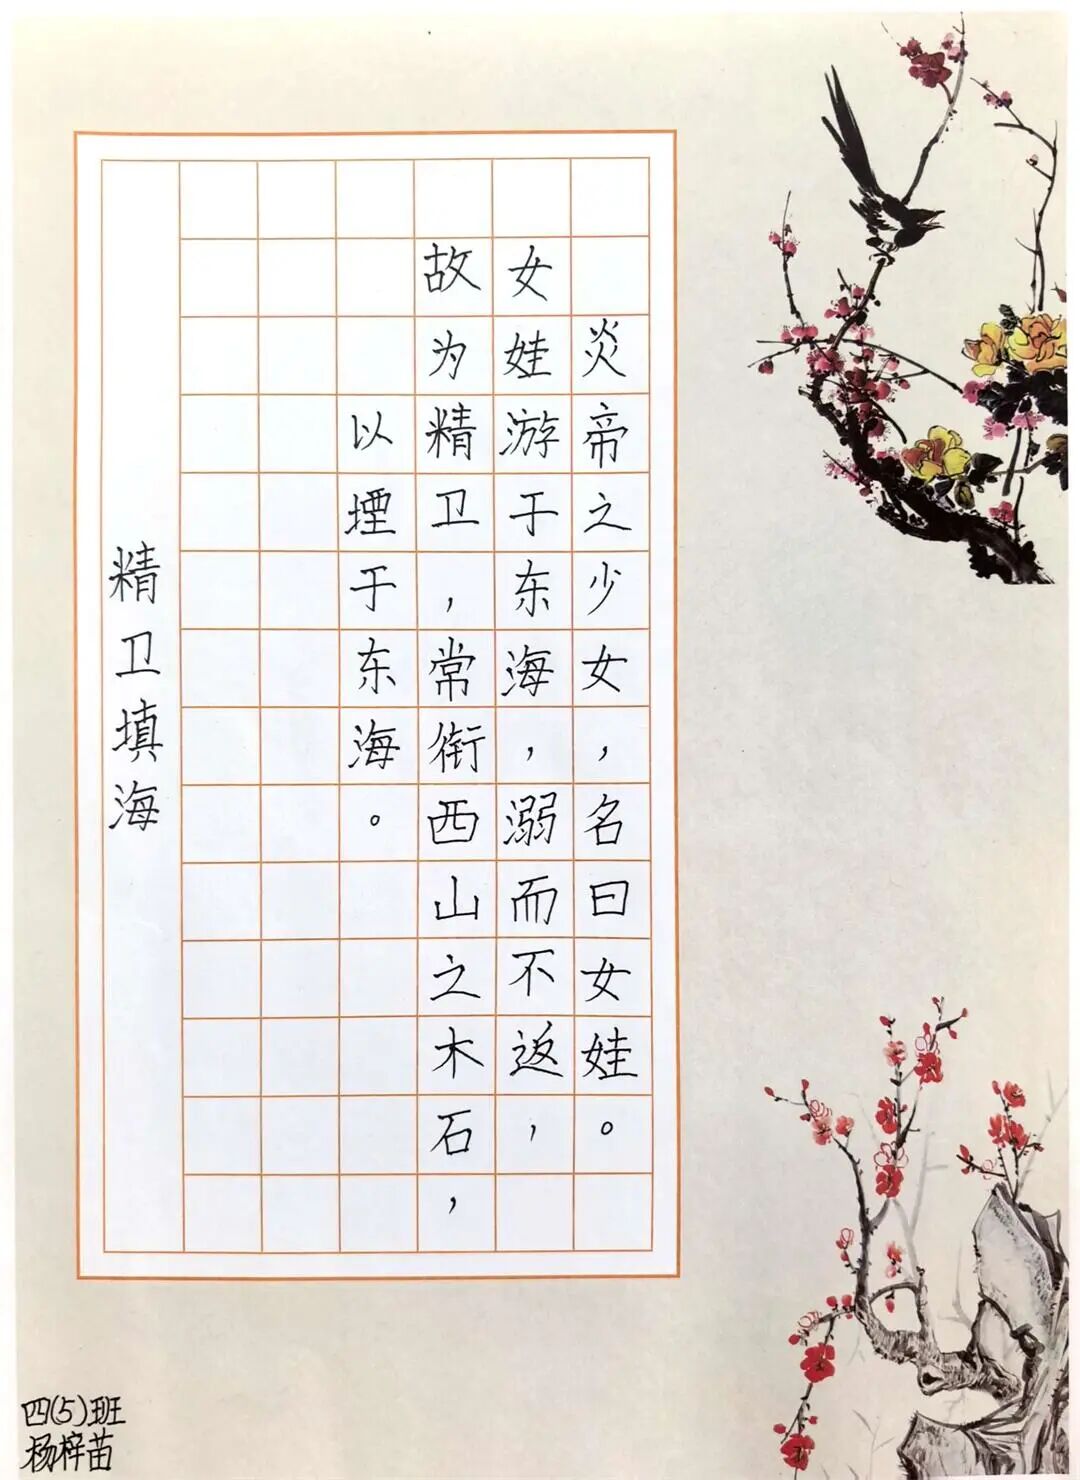 炎帝之少女，名曰女娃。
女娃游于东海，溺而不返，
故为精卫，常衔西山之木石，
以堙于东海。
精卫填海
四(5)班
杨梓苗